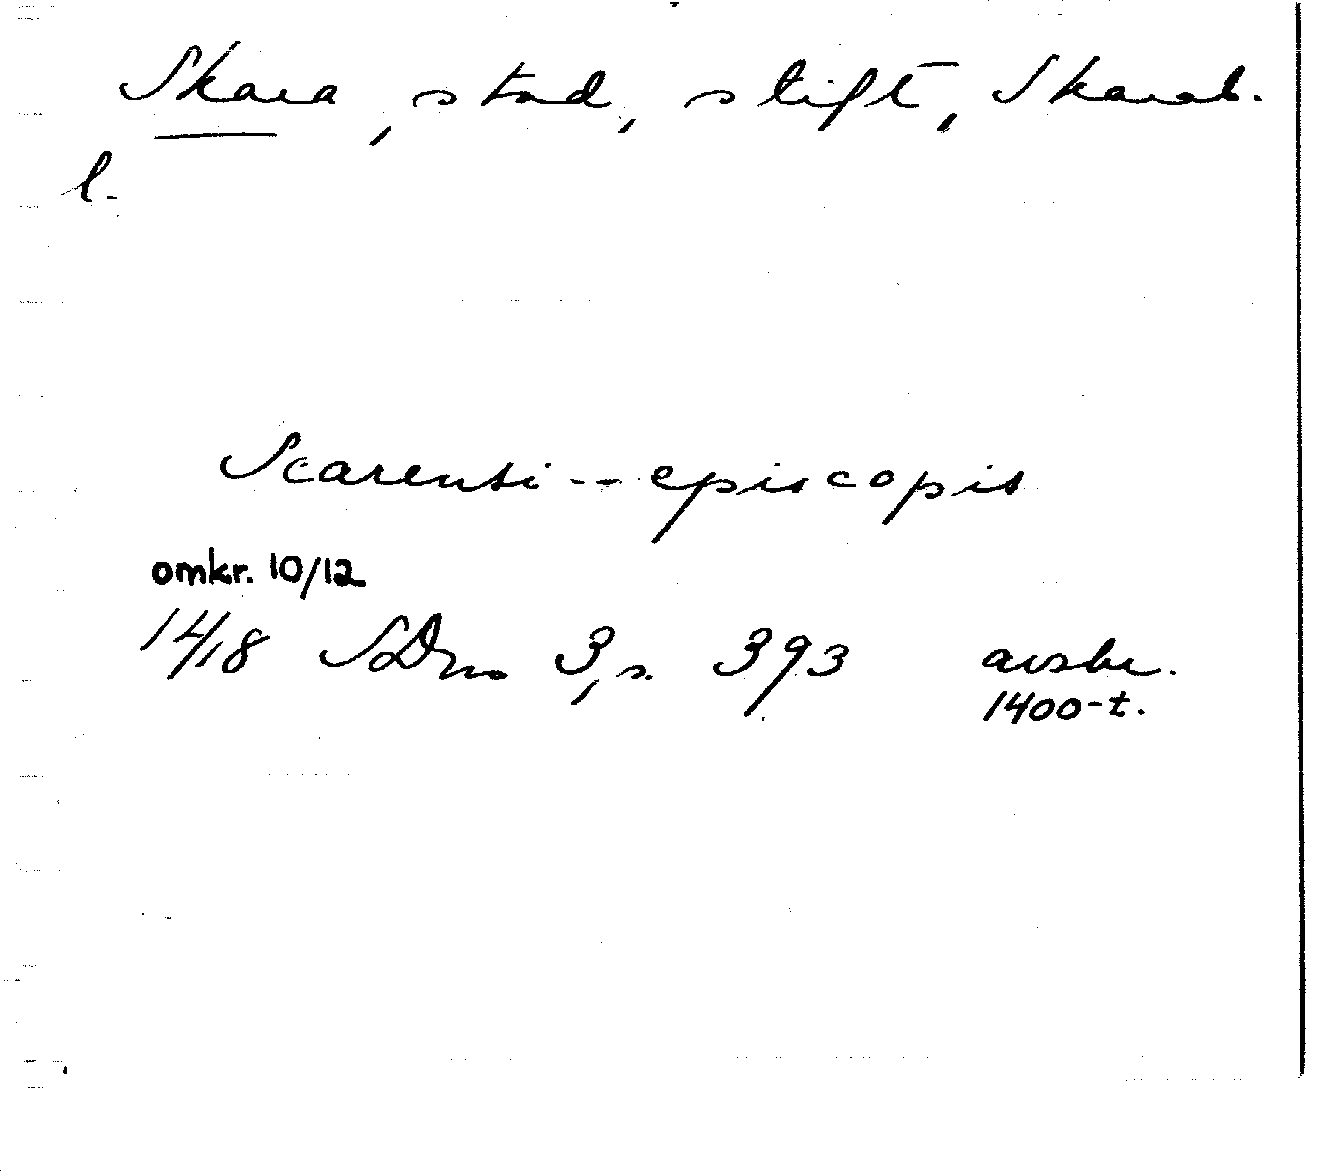 Skara, stad, stift, Skarab.
l.
Scarensi -- episcopis
omkr. 10/12
14/18 SDns 3, s. 393 avskr.
1400-t.